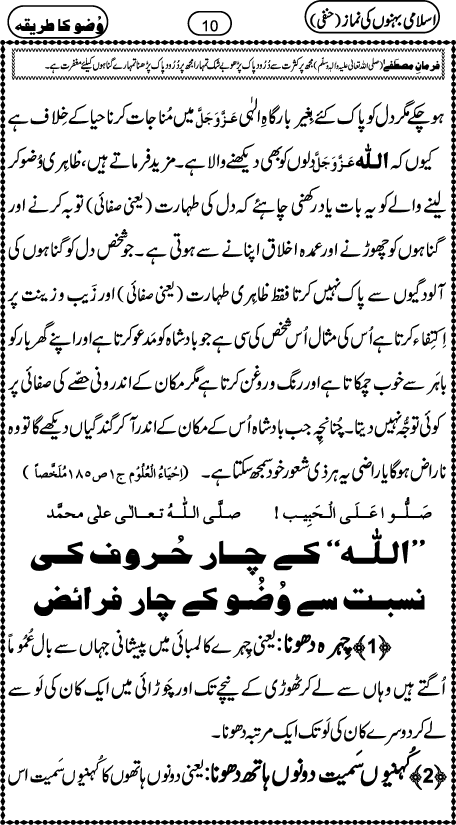 اسلامی بہنوں کی نماز (حنفی)
10
وُضو کا طریقہ
فرمانِ مصطفٰے (صلی اللہ تعالیٰ علیہ والہ وسلم) مجھ پر کثرت سے دُرُود پاک پڑھو بے شک تمہارا مجھ پر دُرُود پاک پڑھنا تمہارے گناہوں کیلئے مغفرت ہے۔
ہو چکے مگر دل کو پاک کئے بِغیر بارگاہِ الٰہی عَزَّوَجَلَّ میں مُناجات کرنا حیا کے خِلاف ہے
کیوں کہ اللہ عَزَّوَجَلَّ دلوں کو بھی دیکھنے والا ہے۔ مزید فرماتے ہیں، ظاہری وُضو کر
لینے والے کو یہ بات یاد رکھنی چاہئے کہ دل کی طہارت (یعنی صفائی) توبہ کرنے اور
گناہوں کو چھوڑنے اور عمدہ اخلاق اپنانے سے ہوتی ہے۔ جو شخص دل کو گناہوں کی
آلودگیوں سے پاک نہیں کرتا فقط ظاہِری طہارت (یعنی صفائی) اور زَیب و زینت پر
اِکتِفاء کرتا ہے اُس کی مثال اُس شخص کی سی ہے جو بادشاہ کو مَدعو کرتا ہے اور اپنے گھر بار کو
باہَر سے خوب چمکاتا ہے اور رنگ و روغن کرتا ہے مگر مکان کے اندرونی حصّے کی صفائی پر
کوئی توجُّہ نہیں دیتا۔ چُنانچِہ جب بادشاہ اُس کے مکان کے اندر آ کر گندگیاں دیکھے گا تو وہ
ناراض ہو گا یا راضی یہ ہر ذی شُعور خود سمجھ سکتا ہے۔ (اِحیاءُ الْعُلُوم ج۱ص۱۸۵مُلَخَّصاً)
صَلُّوا عَلَی الْحَبِیب! صلَّی اللہُ تعالٰی علٰی محمَّد
”اللہ“ کے چار حُروف کی
نسبت سے وُضُو کے چار فرائض
﴿1﴾ چِہرہ دھونا: یعنی چہرے کا لمبائی میں پیشانی جہاں سے بال عُمُوماً
اُگتے ہیں وہاں سے لے کر ٹھوڑی کے نیچے تک اور چوڑائی میں ایک کان کی لَو سے
لے کر دوسرے کان کی لَو تک ایک مرتبہ دھونا۔
﴿2﴾ کُہنیوں سَمیت دونوں ہاتھ دھونا: یعنی دونوں ہاتھوں کا کُہنیوں سَمیت اس